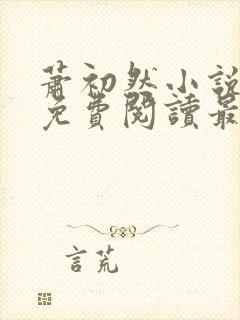 蕭初然小說
免費閱讀最
言荒